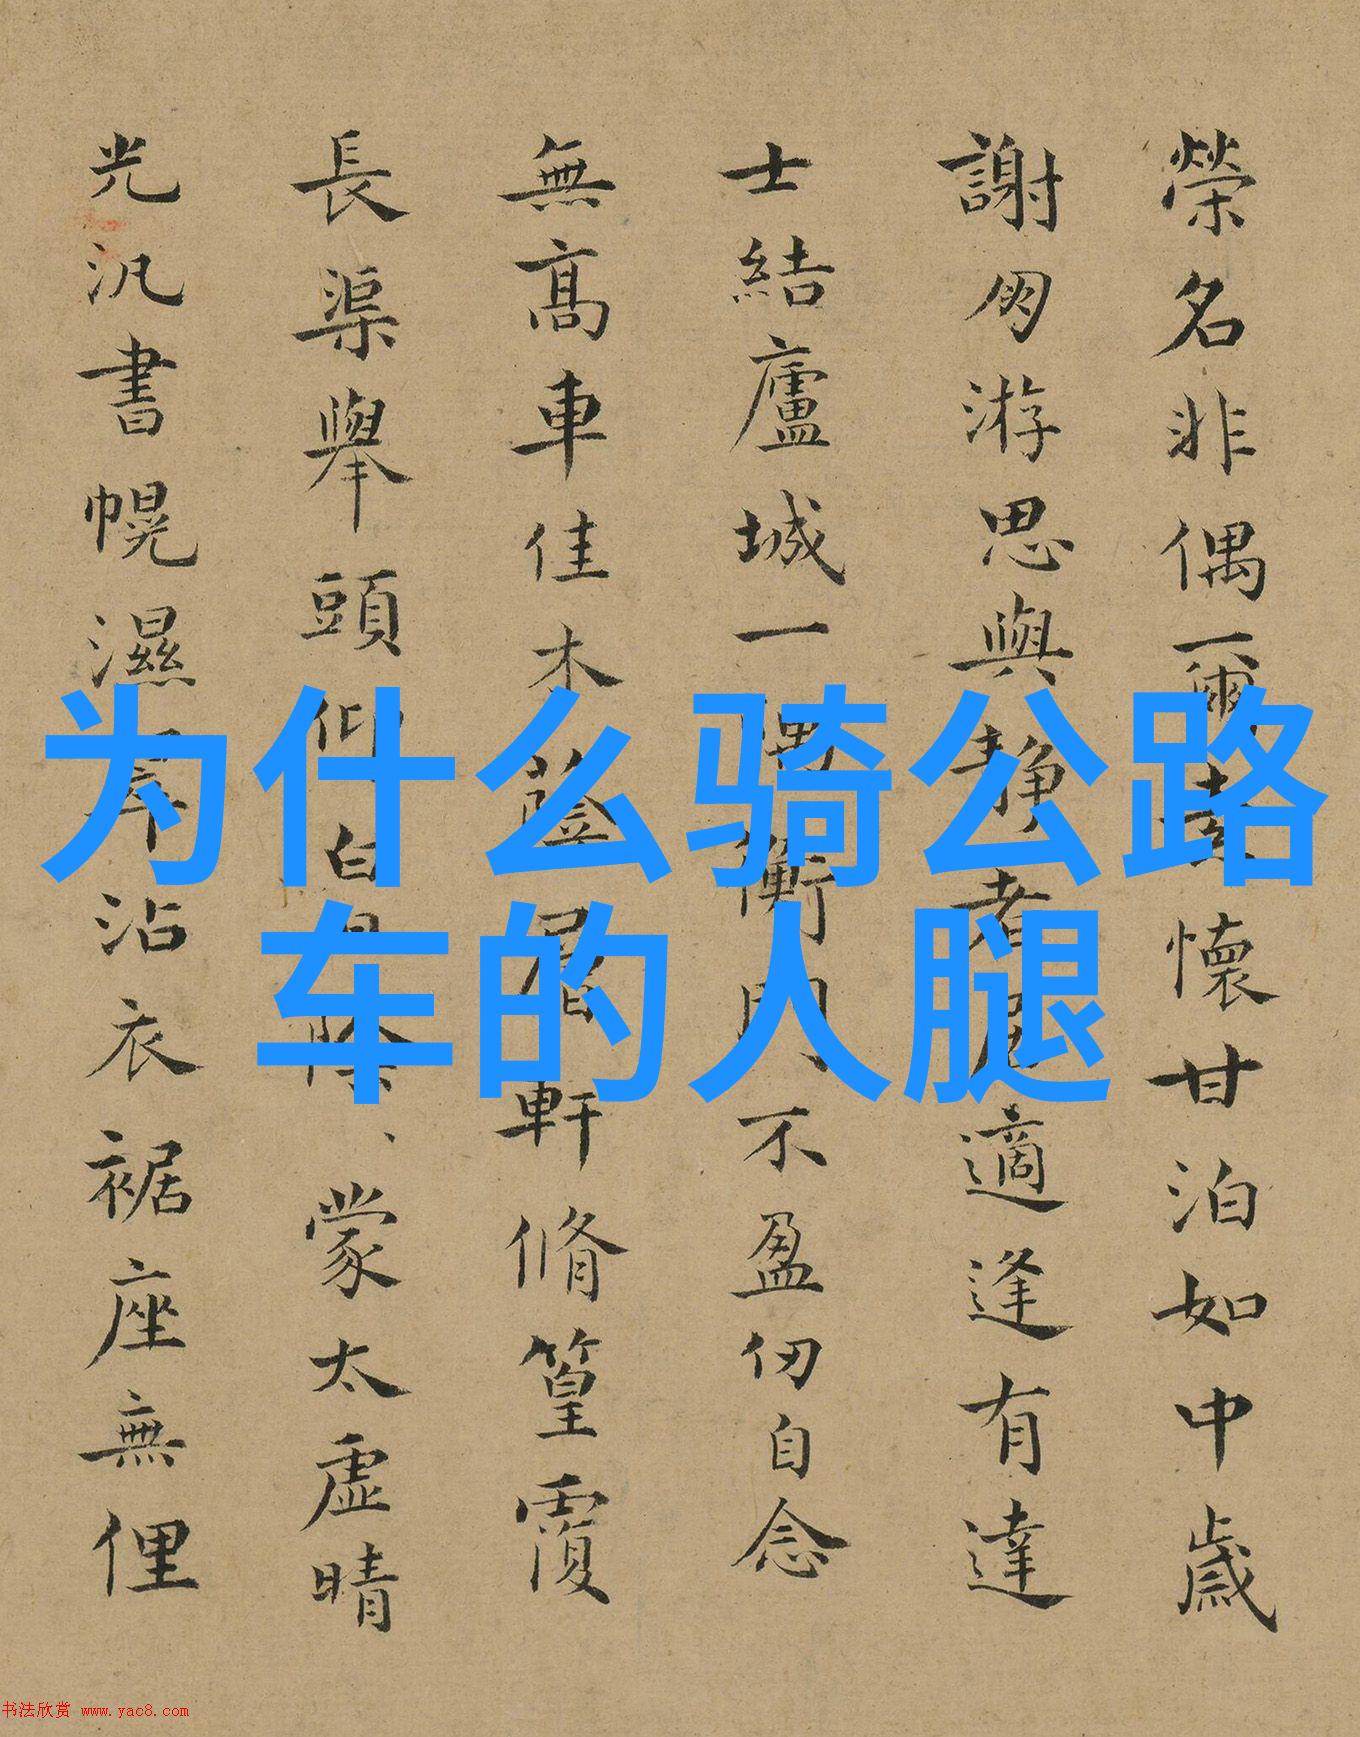 为什么骑公路
车的人腿
榮名非偶爾遠懷甘泊如中歲
謝朋游思與靜者居適逢有達
士結廬城一隅衡門不盈仞自念
無髙車佳木蔭層軒脩篁覆
長渠舉頭仰白日陰蒙太虛晴
光汎書幌濕翠沾衣裾座無俚
书法欣赏 www.yac8.com